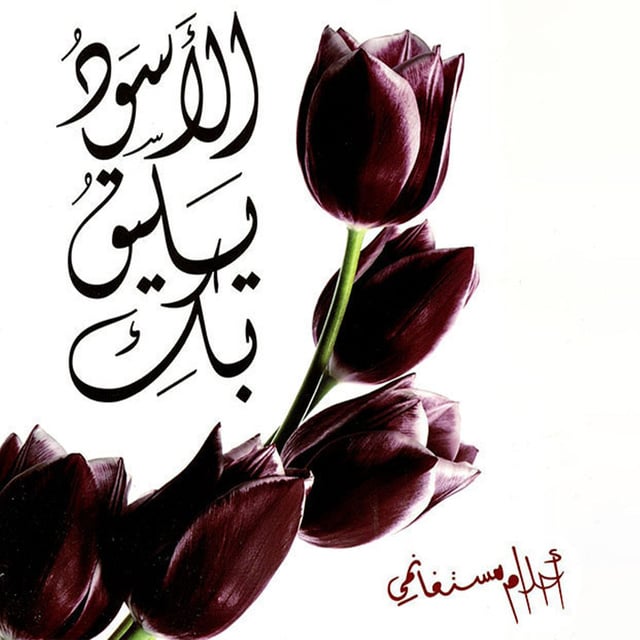 الأسوَدُ
يَليّقُ
بكِ
أحلام مستغانمي